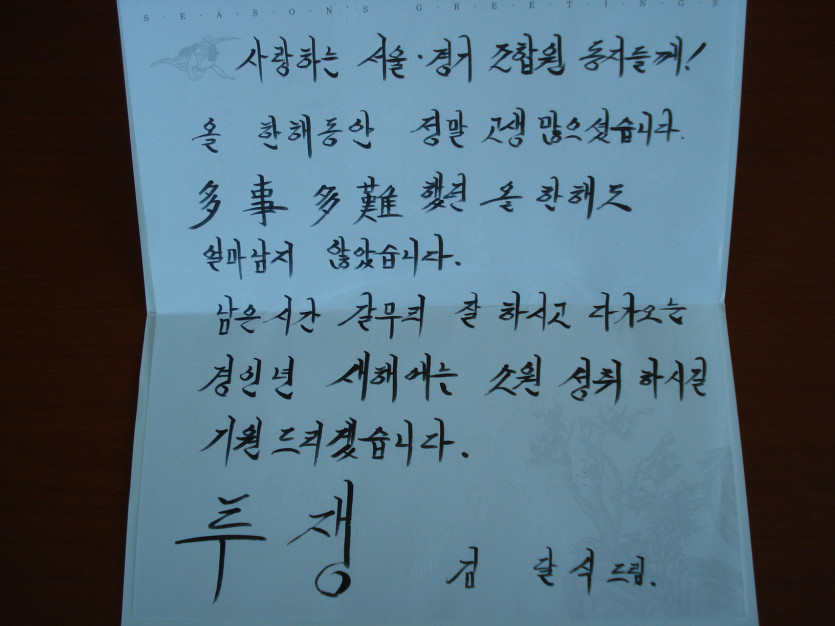 SEASON'S GREETINGS
사랑하는 서울·경기 조합원 동지들께!
올 한해동안 정말 고생 많으셨습니다.
多事多難 했던 올 한해도
얼마남지 않았습니다.
남은시간 갈무리 잘 하시고 다가오는
경인년 새해에는 소원 성취 하시길
기원드리겠습니다.
투쟁
김 달식드림.